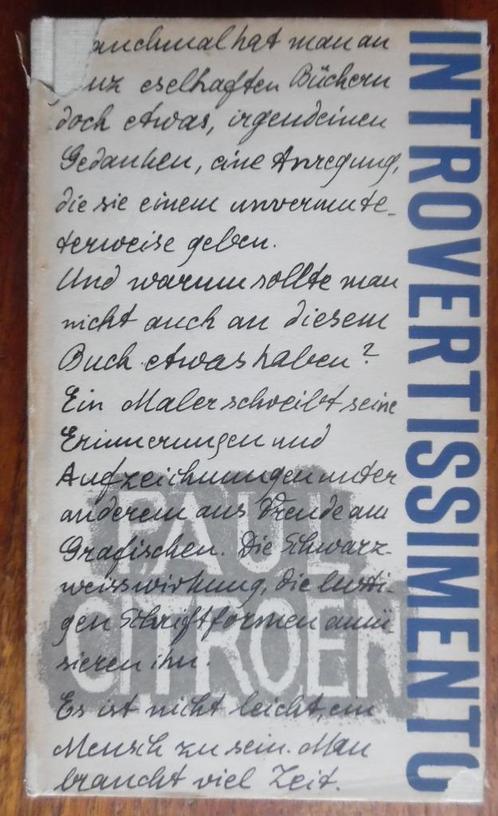 anchmal hat man an
nz eselhaften Büchern
doch etwas, irgendeinen
Gedanken, eine Anregung,
die sie einem unvermute-
terweise geben.
Und warum sollte man
nicht auch an diesem
Buch etwas haben?
Ein Maler schreibt seine
Erinnerungen und
Aufzeichnungen unter
anderem aus Freude am
Grafischen. Die Schwarz-
weisswirkung, die lusti-
gen Schriftformen amü
sieren ihn.
Es ist nicht leicht, ein
Mensch zu sein. Man
braucht viel Zeit.
PAUL
CITROEN
INTROVERTISSIMENTO